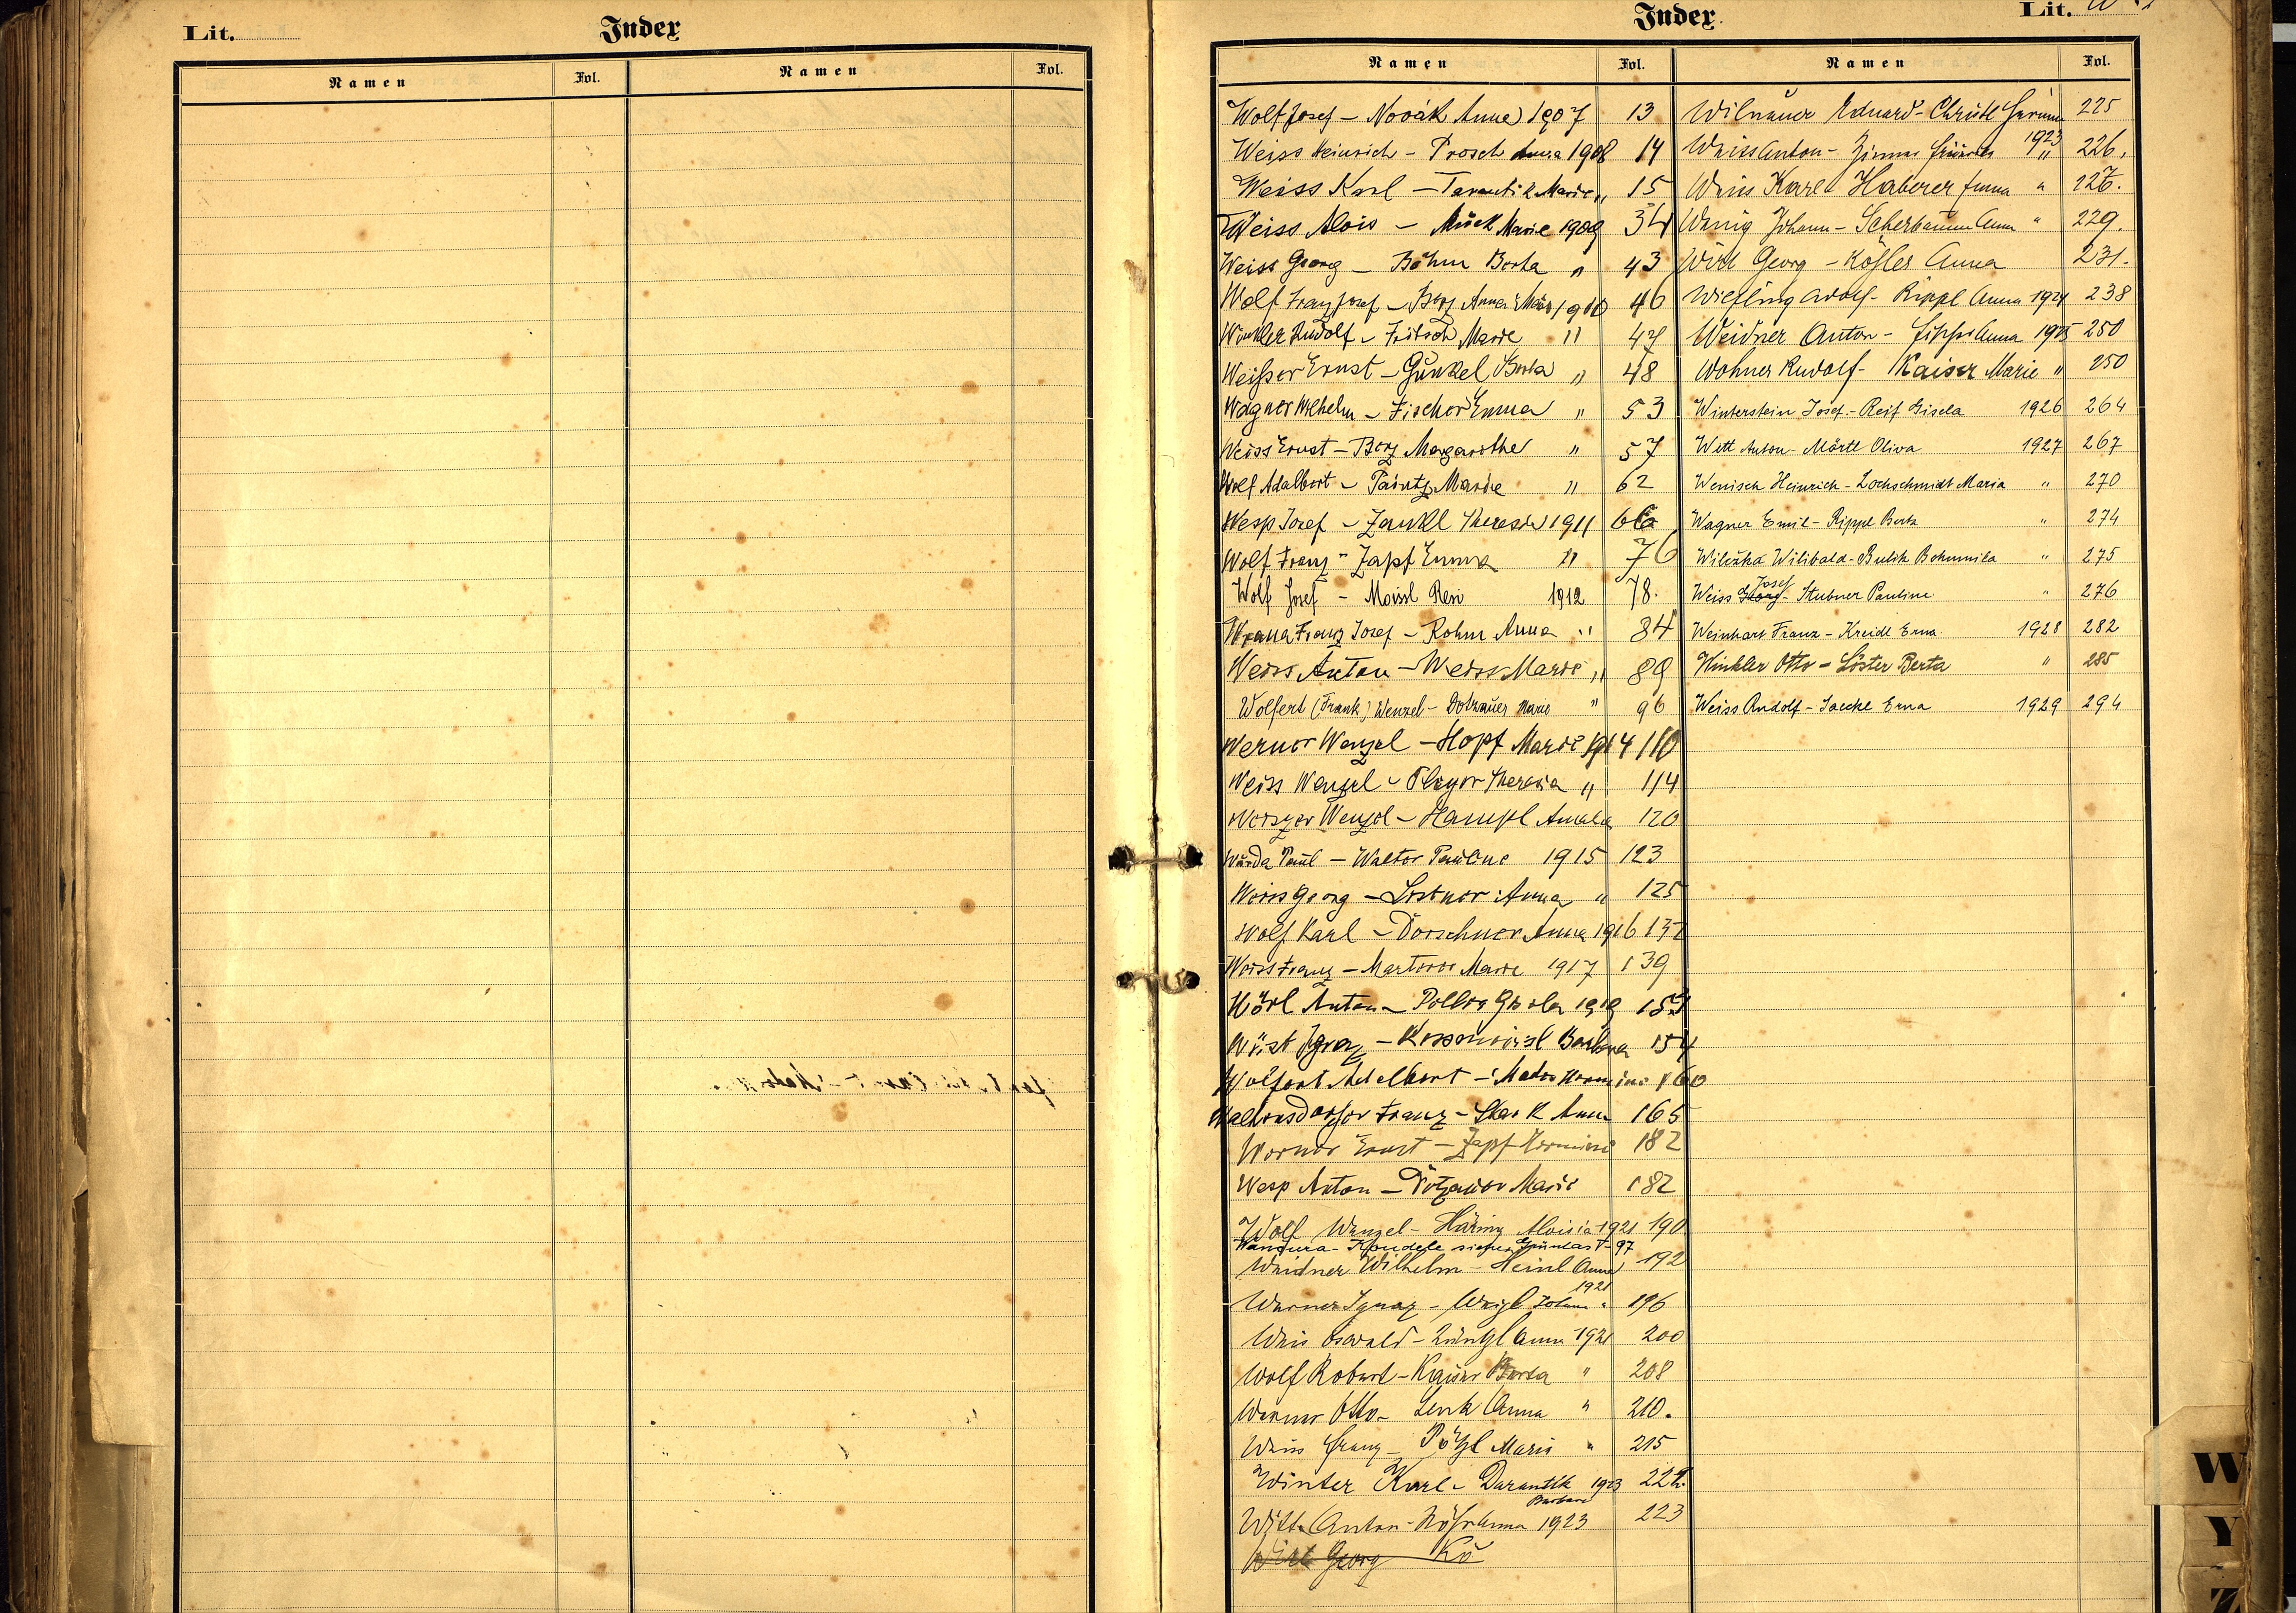 Lit.
Index
Namen Fol. Namen Fol.
Index.
Lit. W
Namen Fol. Namen Fol.
Wolf Josef - Novák Anna 1907 13
Weiss Heinrich - Prosch Anna 1908 14
Weiss Karl - Tarantik Marie " 15
Weiss Alois - Mück Marie 1909 34
Weiss Georg - Böhm Berta " 43
Wolf Franz Josef - Berz Anna 1910 46
Winkler Rudolf - Fritsch Marie " 47
Weisser Ernst - Günkel Berta " 48
Wagner Wilhelm - Fischer Emma " 53
Weiss Ernst - Berz Margarethe " 57
Wolf Adalbert - Marie " 62
Wesp Josef - Zankl Theresia 1911 66
Wolf Franz - Zapf Emma " 76
Wolf Josef - Moissl Resi 1912 78.
Wrana Franz Josef - Rohm Anna " 84
Weiss Anton - Weiss Marie " 89
Wolfert (Frank) Wenzel - Dotzauer Marie " 96
Werner Wenzel - Hopf Marie 1914 110
Weiss Wenzel - Pleyer Theresia " 114
Wenzel - Hampl Amalia 120
Warda Paul - Walter Pauline 1915 123
Weiss Georg - Anna " 125
Wolf Karl - Dörschner Anna 1916 137
Weiss Franz - Marie 1917 139
Wörl Anton - 1919 153
Wüst Ignaz - Barbara 154
Wolfert Adelbert - Mader Hermine 160
Franz - Stark Anna 165
Werner Ernst - Zapf Hermine 182
Wesp Anton - Dotzauer Marie 182
Wolf Wenzel - Häring Aloisia 1921 190
97
Weidner Wilhelm - Heinl Anna 192
1921
Werner Ignaz - Weigl " 196
Weis Oswald - Anna 1921 200
Wolf Robert - Kaiser Berta " 208
Werner Otto - Lenk Anna " 210.
Weiss Franz - Pötzl Marie " 215
Winter Karl - Darantik 1923 222.
Barbara
Witt Anton - Anna 1923 223
Wirl Georg Kö
Wilnauer Eduard - Christl 225
1923
Weiss Anton - " 226.
Weiss Karl - Haberer Emma " 226.
Wenig Johann - Scherbaum Anna " 229.
Wirl Georg - Kößler Anna 231.
Wießling Adolf - Rippl Anna 1924 238
Weidner Anton - Lippl Anna 1925 250
Wohner Rudolf - Kaiser Marie " 250
Winterstein Josef - Reif Gisela 1926 264
Witt Anton - Märtl Oliva 1927 267
Wenisch Heinrich - Lochschmidt Maria " 270
Wagner Emil - Rippl Berta " 274
Wilibald - Bohumila " 275
Josef
Weiss Georg - Stubner Pauline " 276
Weinhart Franz - Kreidl Erna 1928 282
Winkler Otto - Löster Berta " 285
Weiss Rudolf - Jaeckl Erna 1929 294
W
Y
Z